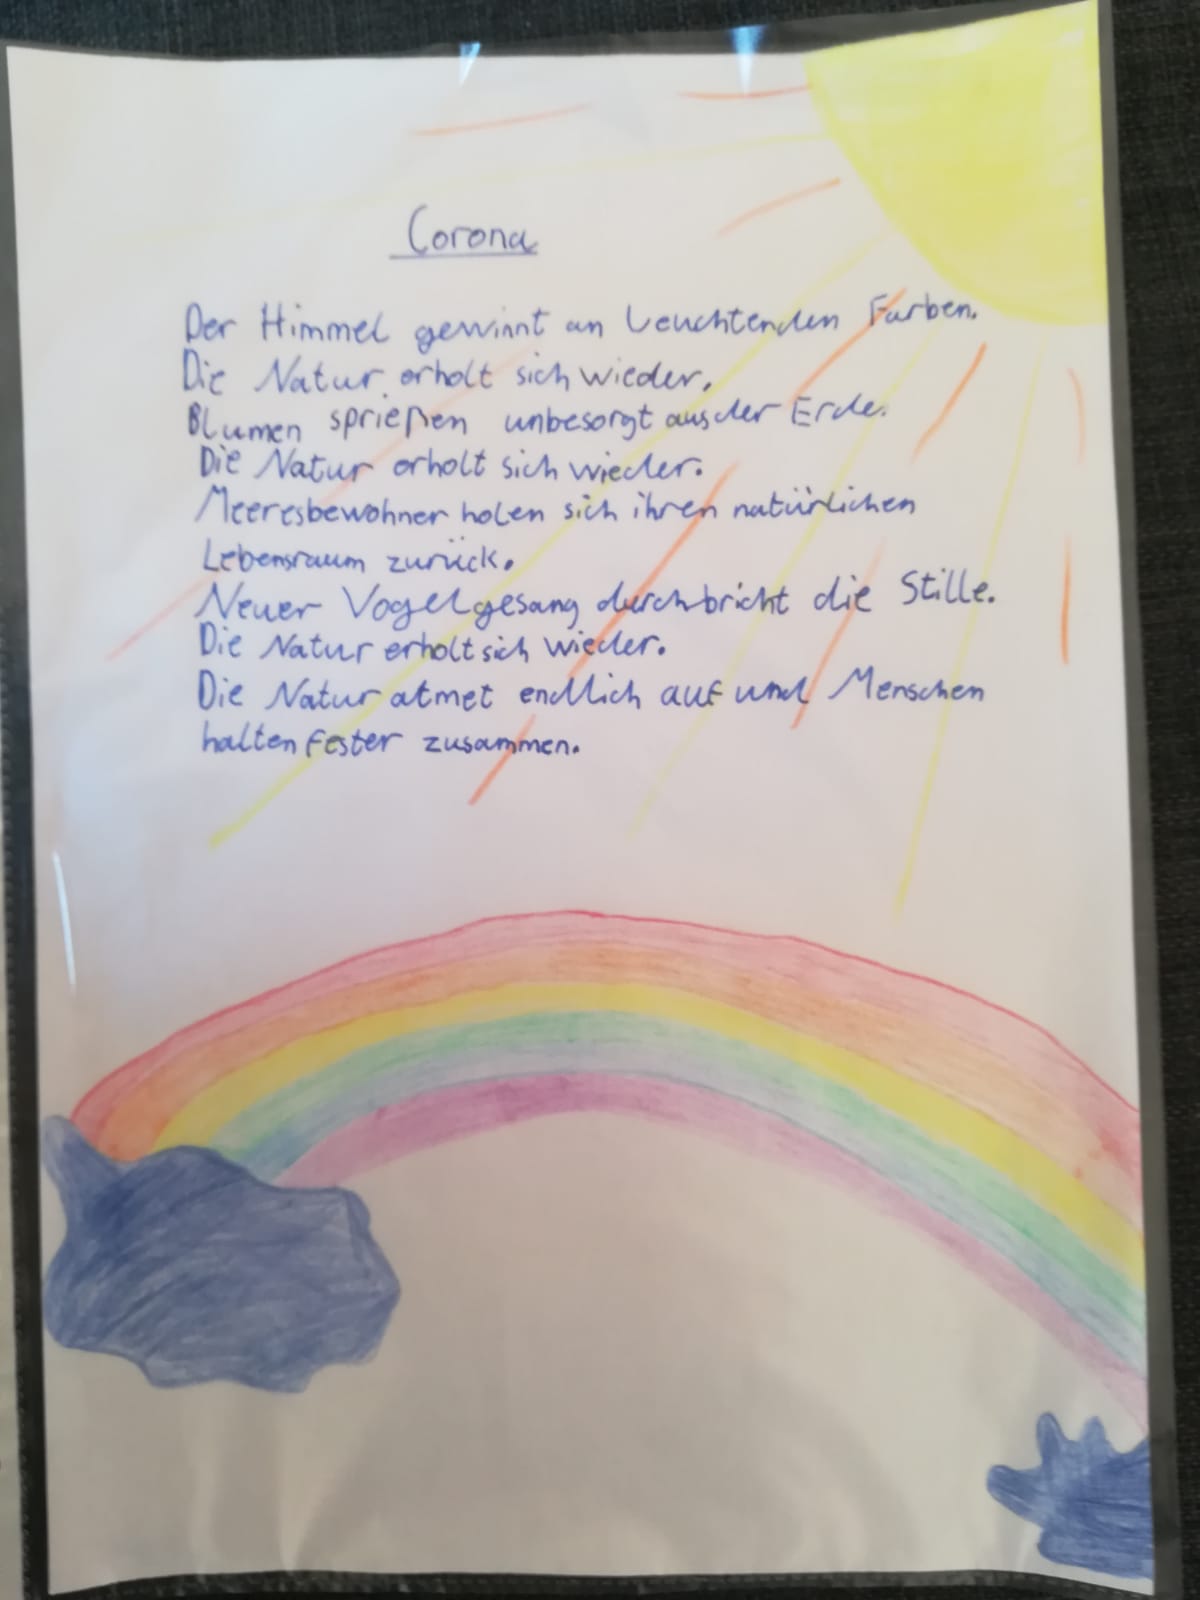 Corona
Der Himmel gewinnt an leuchtenden Farben.
Die Natur erholt sich wieder.
Blumen sprießen unbesorgt aus der Erde.
Die Natur erholt sich wieder.
Meeresbewohner holen sich ihren natürlichen
Lebensraum zurück.
Neuer Vogelgesang durchbricht die Stille.
Die Natur erholt sich wieder.
Die Natur atmet endlich auf und Menschen
halten fester zusammen.